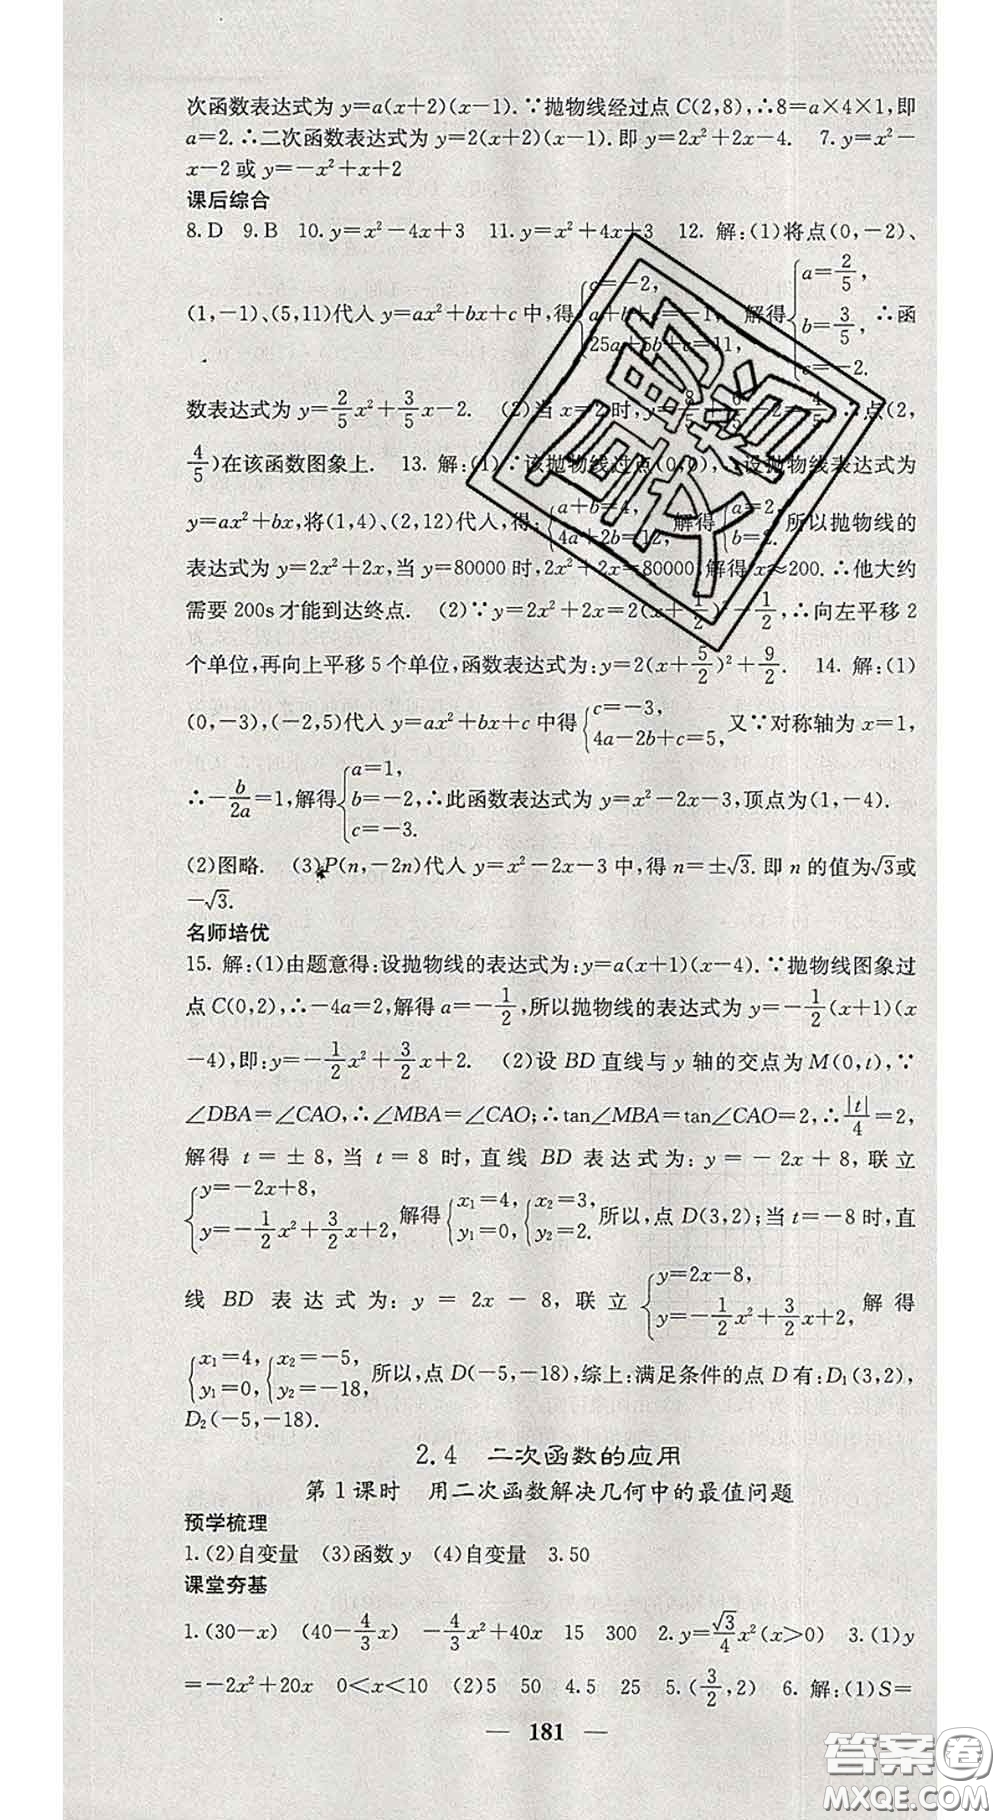 次函数表达式为 y=a(x+2)(x-1).∵抛物线经过点 C(2,8),∴8=a×4×1,即
a=2.∴二次函数表达式为 y=2(x+2)(x-1).即 y=2x²+2x-4. 7.y=x²-
x-2或 y=-x²+x+2
课后综合
8.D 9.B 10.y=x²-4x+3 11.y=x²+4x+3 12. 解:(1)将点(0,-2)、
(1,-1)、(5,11)代入 y=ax²+bx+c 中,得{c=-2, a+b+c=-1, 25a+5b+c=11, 解得{a=2/5, b=3/5, c=-2. ∴函
数表达式为 y=2/5x²+3/5x-2. (2)当 x=2时,y=8/5+6/5-2=4/5,∴点(2,
4/5)在该函数图象上. 13. 解:(1)∵该抛物线过点(0,0),∴设抛物线表达式为
y=ax²+bx,将(1,4)、(2,12)代人,得:{a+b=4, 4a+2b=12, 解得{a=2, b=2. 所以抛物线的
表达式为 y=2x²+2x,当 y=80000时,2x²+2x=80000,解得 x≈200.∴他大约
需要 200s才能到达终点. (2)∵y=2x²+2x=2(x+1/2)²-1/2,∴向左平移 2
个单位,再向上平移 5个单位,函数表达式为:y=2(x+5/2)²+9/2. 14. 解:(1)
(0,-3),(-2,5)代入 y=ax²+bx+c 中得{c=-3, 4a-2b+c=5, 又∵对称轴为 x=1,
∴-b/2a=1,解得{a=1, b=-2, c=-3. ∴此函数表达式为 y=x²-2x-3,顶点为(1,-4).
(2)图略. (3)P(n,-2n)代人 y=x²-2x-3 中,得 n=±√3. 即 n 的值为√3或
-√3.
名师培优
15. 解:(1)由题意得:设抛物线的表达式为:y=a(x+1)(x-4).∵抛物线图象过
点 C(0,2),∴-4a=2,解得 a=-1/2,所以抛物线的表达式为 y=-1/2(x+1)(x
-4),即:y=-1/2x²+3/2x+2. (2)设 BD 直线与 y 轴的交点为 M(0,t),∵
∠DBA=∠CAO,∴∠MBA=∠CAO;∴tan∠MBA=tan∠CAO=2,∴|t|/4=2,
解得 t=±8,当 t=8 时,直线 BD 表达式为:y=-2x+8,联立
{y=-2x+8, y=-1/2x²+3/2x+2, 解得{x₁=4, y₁=0, {x₂=3, y₂=2. 所以,点 D(3,2);当 t=-8时,直
线 BD 表达式为:y=2x-8,联立{y=2x-8, y=-1/2x²+3/2x+2, 解得
{x₁=4, y₁=0, {x₂=-5, y₂=-18, 所以,点 D(-5,-18),综上:满足条件的点 D 有:D₁(3,2),
D₂(-5,-18).
2.4 二次函数的应用
第1课时 用二次函数解决几何中的最值问题
预学梳理
1.(2)自变量 (3)函数 y (4)自变量 3.50
课堂夯基
1.(30-x) (40-4/3x) -4/3x²+40x 15 300 2.y=√3/4x²(x>0) 3.(1)y
=-2x²+20x 0<x<10 (2)5 50 4.5 25 5.(3/2,2) 6. 解:(1)S=
— 181 —
答案卷
MXQE.COM